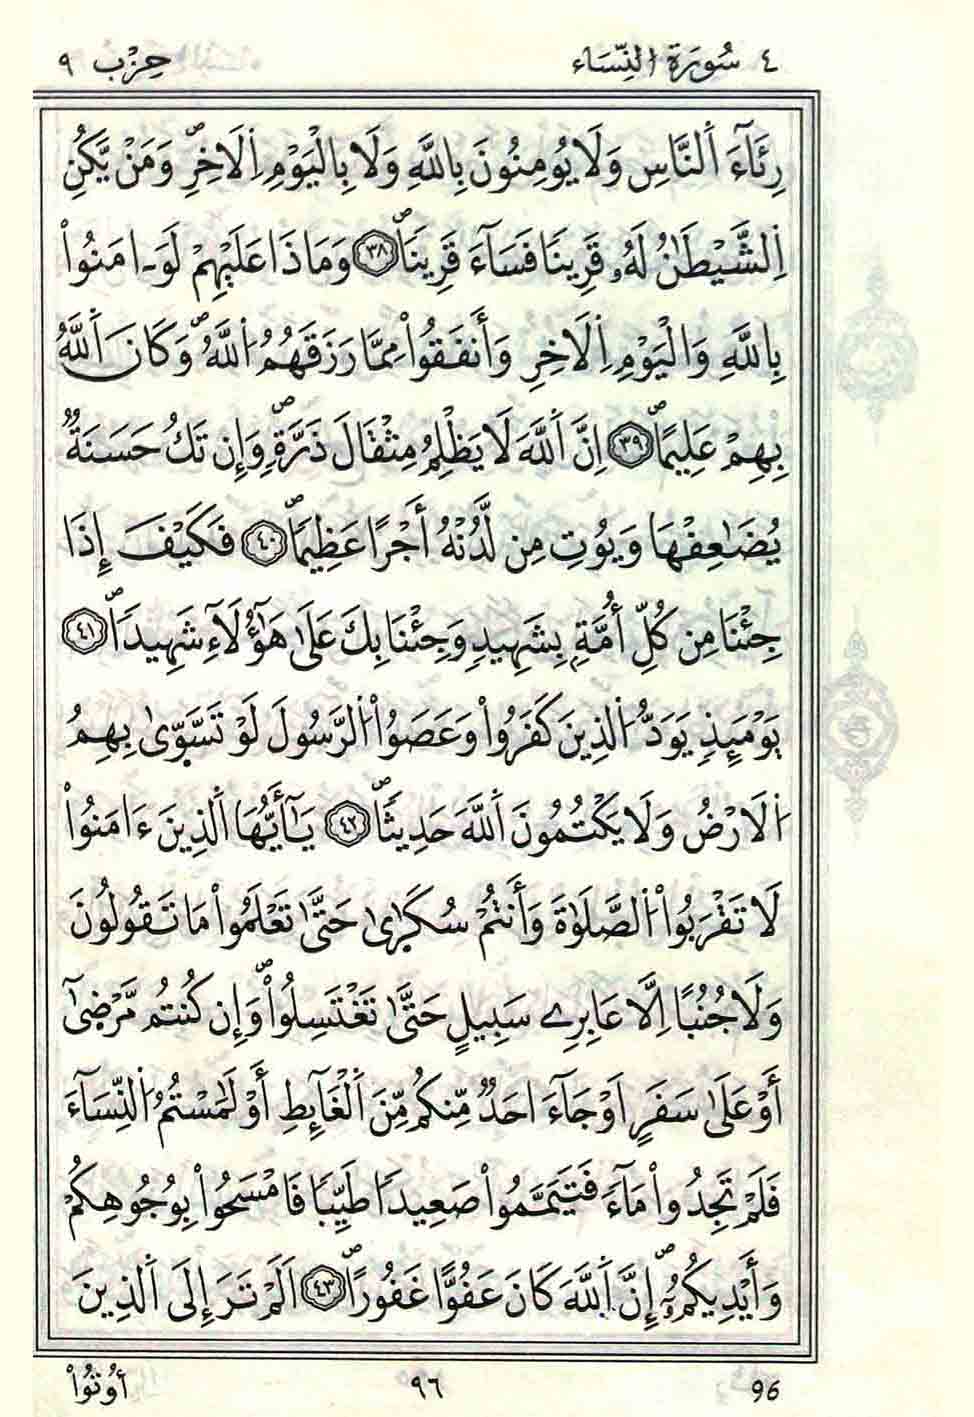 ٤ سُورَةُ النِّسَاء حِزْب ٩
رِئَآءَ اَ۬لنَّاسِ وَلَا يُومِنُونَ بِاللَّهِ وَلَا بِالْيَوْمِ اِ۬لَاخِرِۖ وَمَنْ يَّكُنِ
اِ۬لشَّيْطَٰنُ لَهُۥ قَرِينٗا فَسَآءَ قَرِينٗاۖ ٣٨ وَمَاذَا عَلَيْهِمْ لَوَ ـ امَنُواْ
بِاللَّهِ وَالْيَوْمِ اِ۬لَاخِرِ وَأَنفَقُواْ مِمَّا رَزَقَهُمُ اُ۬للَّهُۖ وَكَانَ اَ۬للَّهُ
بِهِمْ عَلِيمًاۖ ٣٩ اِنَّ اَ۬للَّهَ لَا يَظْلِمُ مِثْقَالَ ذَرَّةٖۖ وَإِن تَكُ حَسَنَةٞ
يُضَٰعِفْهَا وَيُوتِ مِن لَّدُنْهُ أَجْرًا عَظِيمٗاۖ ٤٠ فَكَيْفَ إِذَا
جِئْنَا مِن كُلِّ أُمَّةِۢ بِشَهِيدٖ وَجِئْنَا بِكَ عَلَىٰ هَٰٓؤُلَآءِ شَهِيدٗاۖ ٤١
يَوْمَئِذٖ يَوَدُّ اُ۬لذِينَ كَفَرُواْ وَعَصَوُاْ اُ۬لرَّسُولَ لَوْ تَسَّوّ۪ىٰ بِهِمُ
اُ۬لَارْضُ وَلَا يَكْتُمُونَ اَ۬للَّهَ حَدِيثٗاۖ ٤٢ يَٰٓأَيُّهَا اَ۬لذِينَ ءَامَنُواْ
لَا تَقْرَبُواْ اُ۬لصَّلَوٰةَ وَأَنتُمْ سُكَٰر۪ىٰ حَتَّىٰ تَعْلَمُواْ مَا تَقُولُونَ
وَلَا جُنُبًا اِلَّا عَابِرِے سَبِيلٍ حَتَّىٰ تَغْتَسِلُواْۖ وَإِن كُنتُم مَّرْض۪ىٰٓ
أَوْ عَلَىٰ سَفَرٍ اَوْ جَآءَ احَدٞ مِّنكُم مِّنَ اَ۬لْغَآئِطِ أَوْ لَٰمَسْتُمُ اُ۬لنِّسَآءَ
فَلَمْ تَجِدُواْ مَآءٗ فَتَيَمَّمُواْ صَعِيدٗا طَيِّبٗا فَامْسَحُواْ بِوُجُوهِكُمْ
وَأَيْدِيكُمُۥٓۖ إِنَّ اَ۬للَّهَ كَانَ عَفُوًّا غَفُورًاۖ ٤٣ اَلَمْ تَرَ إِلَى اَ۬لذِينَ
96 ٩٦ أُوتُواْ